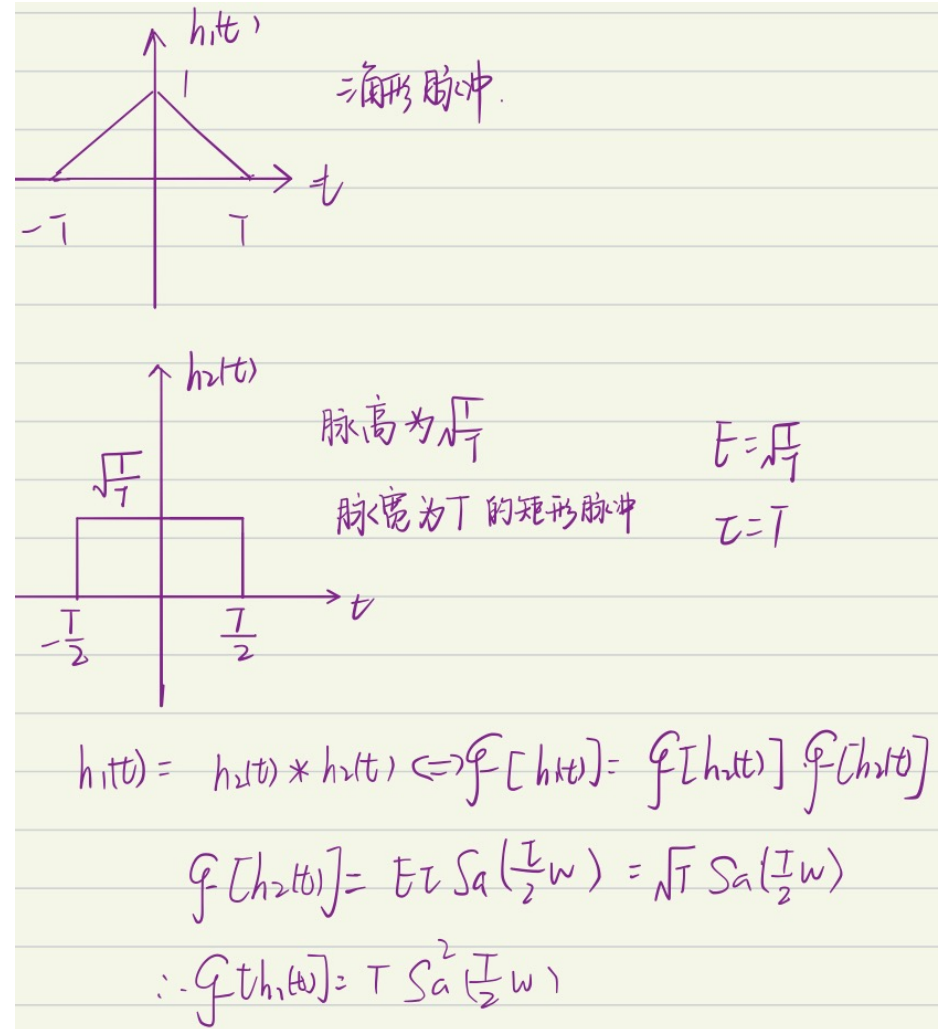 h₁(t)
1
三角形脉冲.
t
-T T
h₂(t)
脉高为√(1/T) E=√(1/T)
√(1/T)
脉宽为T的矩形脉冲 τ=T
t
-T/2 T/2
h₁(t) = h₂(t) * h₂(t) <=> 𝓕[h₁(t)] = 𝓕[h₂(t)] 𝓕[h₂(t)]
𝓕[h₂(t)] = Eτ Sa(τ/2 w) = √T Sa(T/2 w)
∴ 𝓕[h₁(t)] = T Sa²(T/2 w)